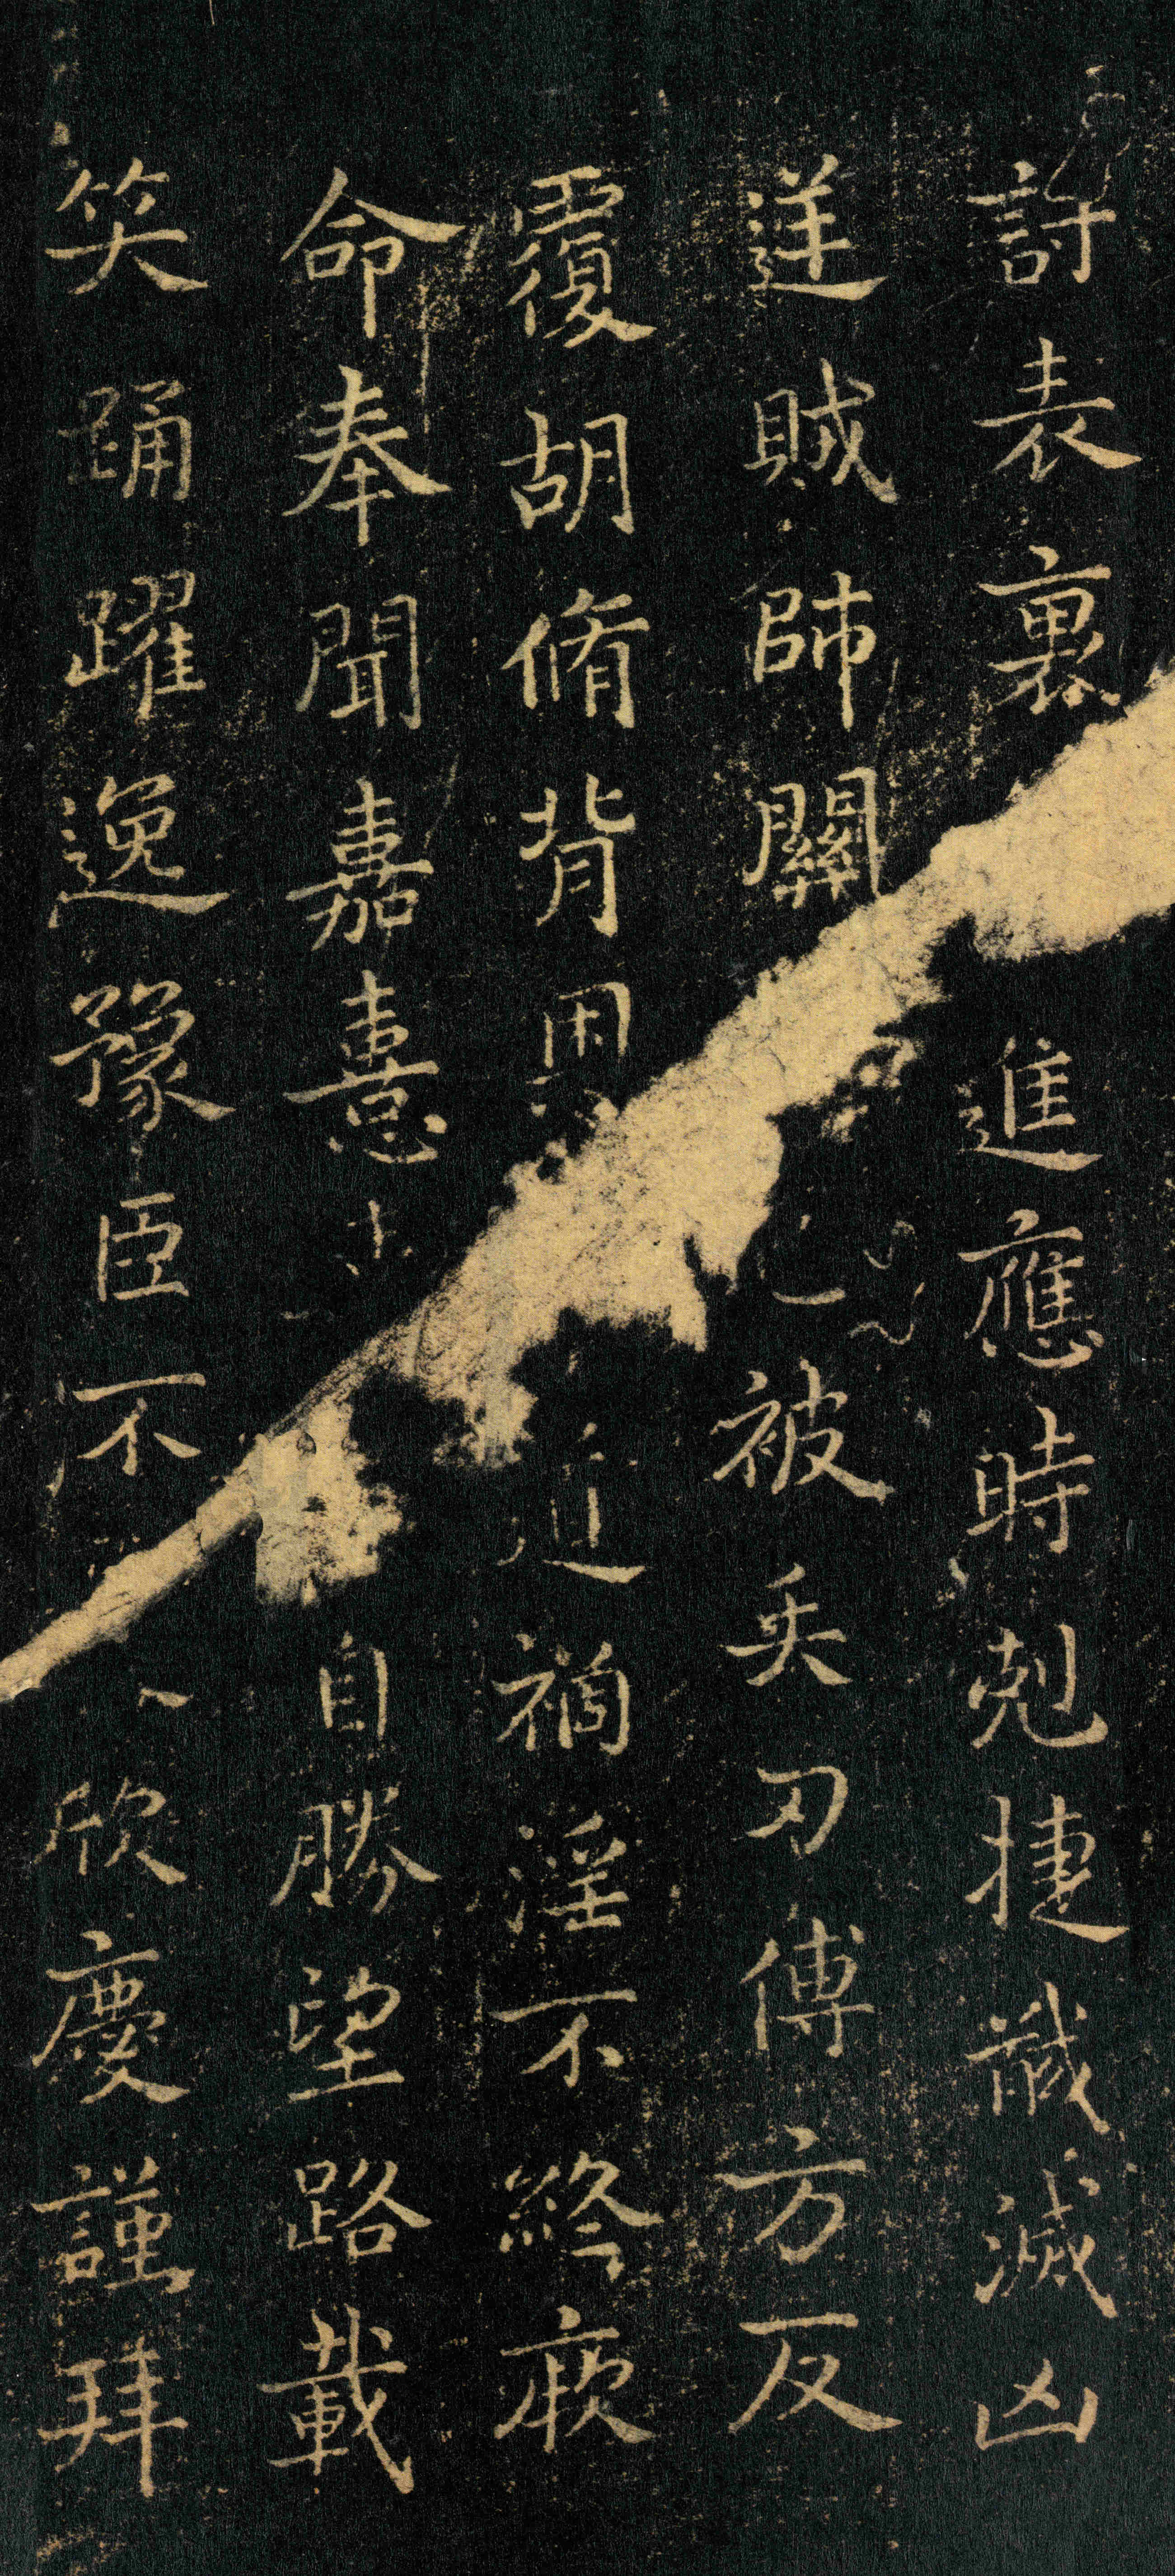 討表裏進應時剋捷馘滅凶
逆賊帥關被矢刃傅方反
覆胡脩背禍淫不終厥
命奉聞嘉憙自勝望路載
笑踊躍逸豫臣不欣慶謹拜